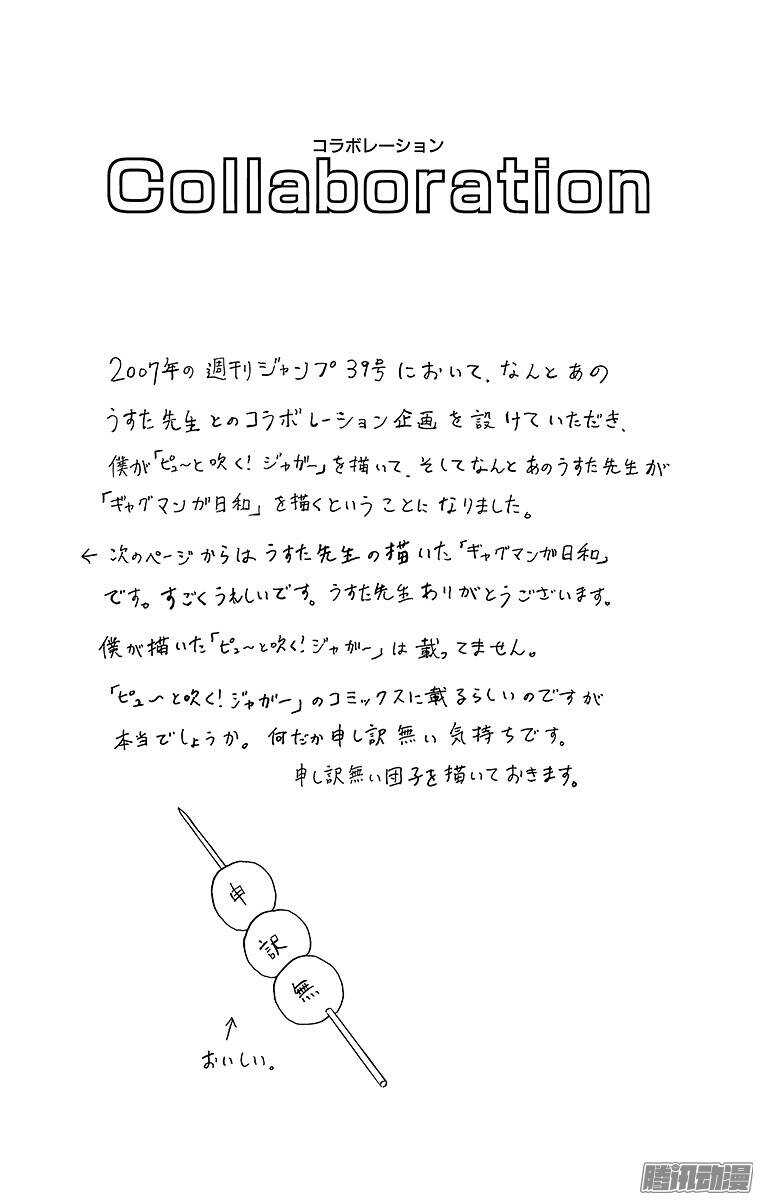 コラボレーション
Collaboration
2007年の週刊ジャンプ39号において、なんとあの
うすた先生とのコラボレーション企画を設けていただき、
僕が「ピュ〜と吹く!ジャガー」を描いて、そしてなんとあのうすた先生が
「ギャグマンが日和」を描くということになりました。
← 次のページからはうすた先生の描いた「ギャグマンが日和」
です。すごくうれしいです。うすた先生ありがとうございます。
僕が描いた「ピュ〜と吹く!ジャガー」は載ってません。
「ピュ〜と吹く!ジャガー」のコミックスに載るらしいのですが
本当でしょうか。何だか申し訳無い気持ちです。
申し訳無い団子を描いておきます。
申
訳
無
↑
おいしい。
腾讯动漫